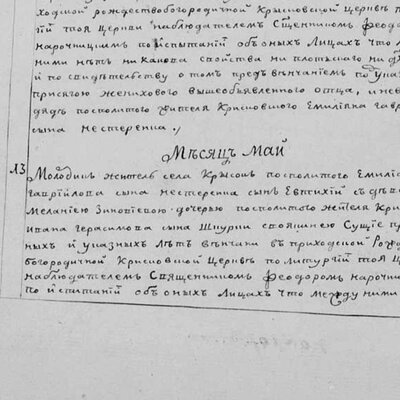 ходной рождествобогородичной Крисновской Церквѣ п
гїй тоя Церкви наблюдателемъ Священникомъ Феодо
нарочницимъ по испытаниї объ оныхъ Лицахъ что м
ними нѣтъ ни какова свойства ни плотскаго ни д
й по свидѣтелству о томъ предъ вѣнчаниемъ по ука
присягою женихового вышеобъявленного отца, и нев
дядь посполитого жителя Крисновского Емилияна гав
сына нестеренка
Мѣсяцъ Май
13 Молодикъ жытель села Крисокъ посполитого Емилї
гаврїилова сына нестеренка сынъ Евтихїй съ дѣв
Меланїею Зиновїевою дочерью посполитого жителя Крис
ивана герасимова сына Шпурки сущїе пр
ныхъ и указныхъ лѣтъ вѣнчани въ приходской Рож
богородичной Крисновской Церквѣ по литургїй тоя Ц
наблюдателемъ Священникомъ Феодоромъ нарочни
по испытаниї объ оныхъ Лицахъ что между ними